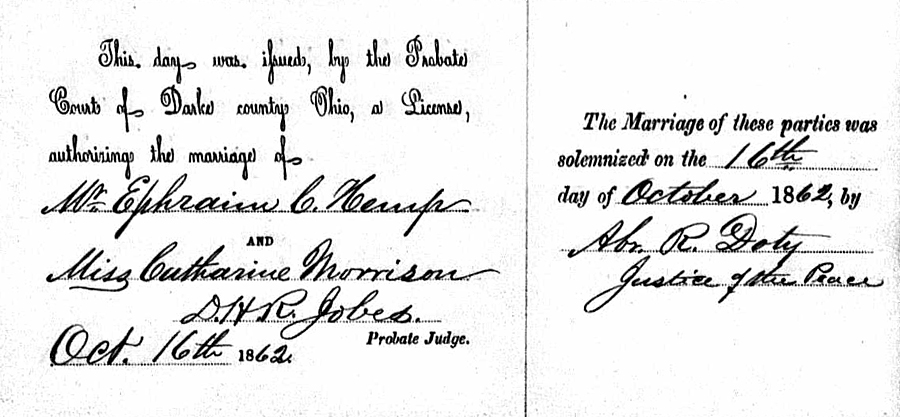 This day was issued, by the Probate
Court of Darke county Ohio, a License,
authorizing the marriage of
Mr. Ephraim C. Hemp
AND
Miss Catharine Morrison
D. H. R. Jobes.
Probate Judge.
Oct. 16th 1862.
The Marriage of these parties was
solemnized on the 16th
day of October 1862, by
Abr. R. Doty
Justice of the Peace